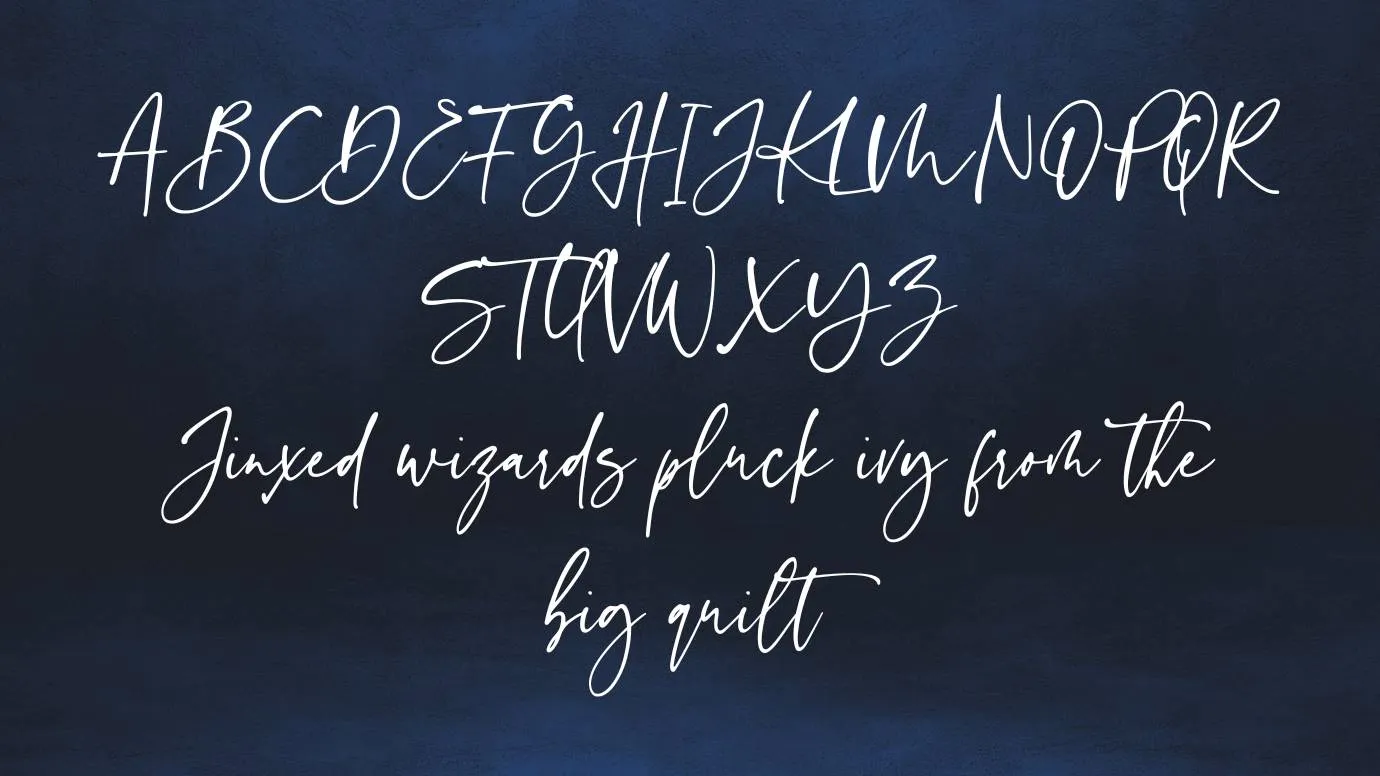 ABCDEFGHIJKLMNOPQR
STUVWXYZ
Jinxed wizards pluck ivy from the
big quilt